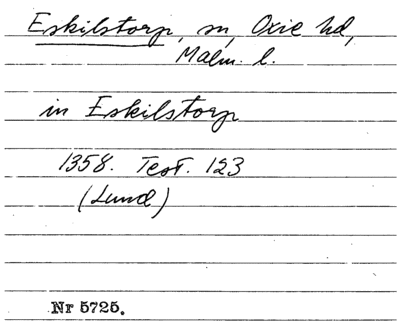 Eskilstorp, sn, Oxie hd,
Malm. l.
in Eskilstorp
1358. Test. 123
(Lund)
Nr 5725.